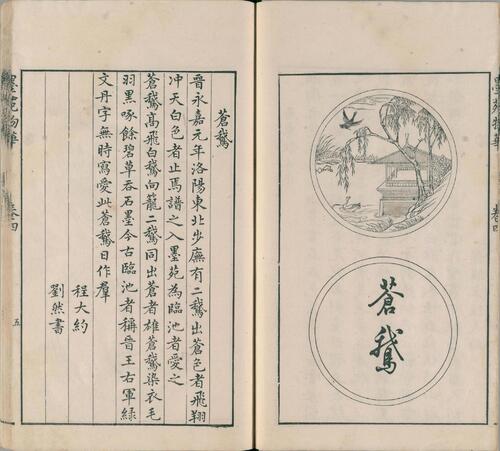 蒼鵞
蒼鵞
晉永嘉元年洛陽東北步廡有二鵞出蒼色者飛翔
冲天白色者止焉譜之入墨苑為臨池者愛之
蒼鵞高飛白鵞向籠二鵞同出蒼者雄蒼鵞染衣毛
羽黑啄餘碧草吞石墨今古臨池者稱晉王右軍綠
文丹字無時寫愛此蒼鵞日作羣
程大約
劉然書
墨苑物華 卷四 五